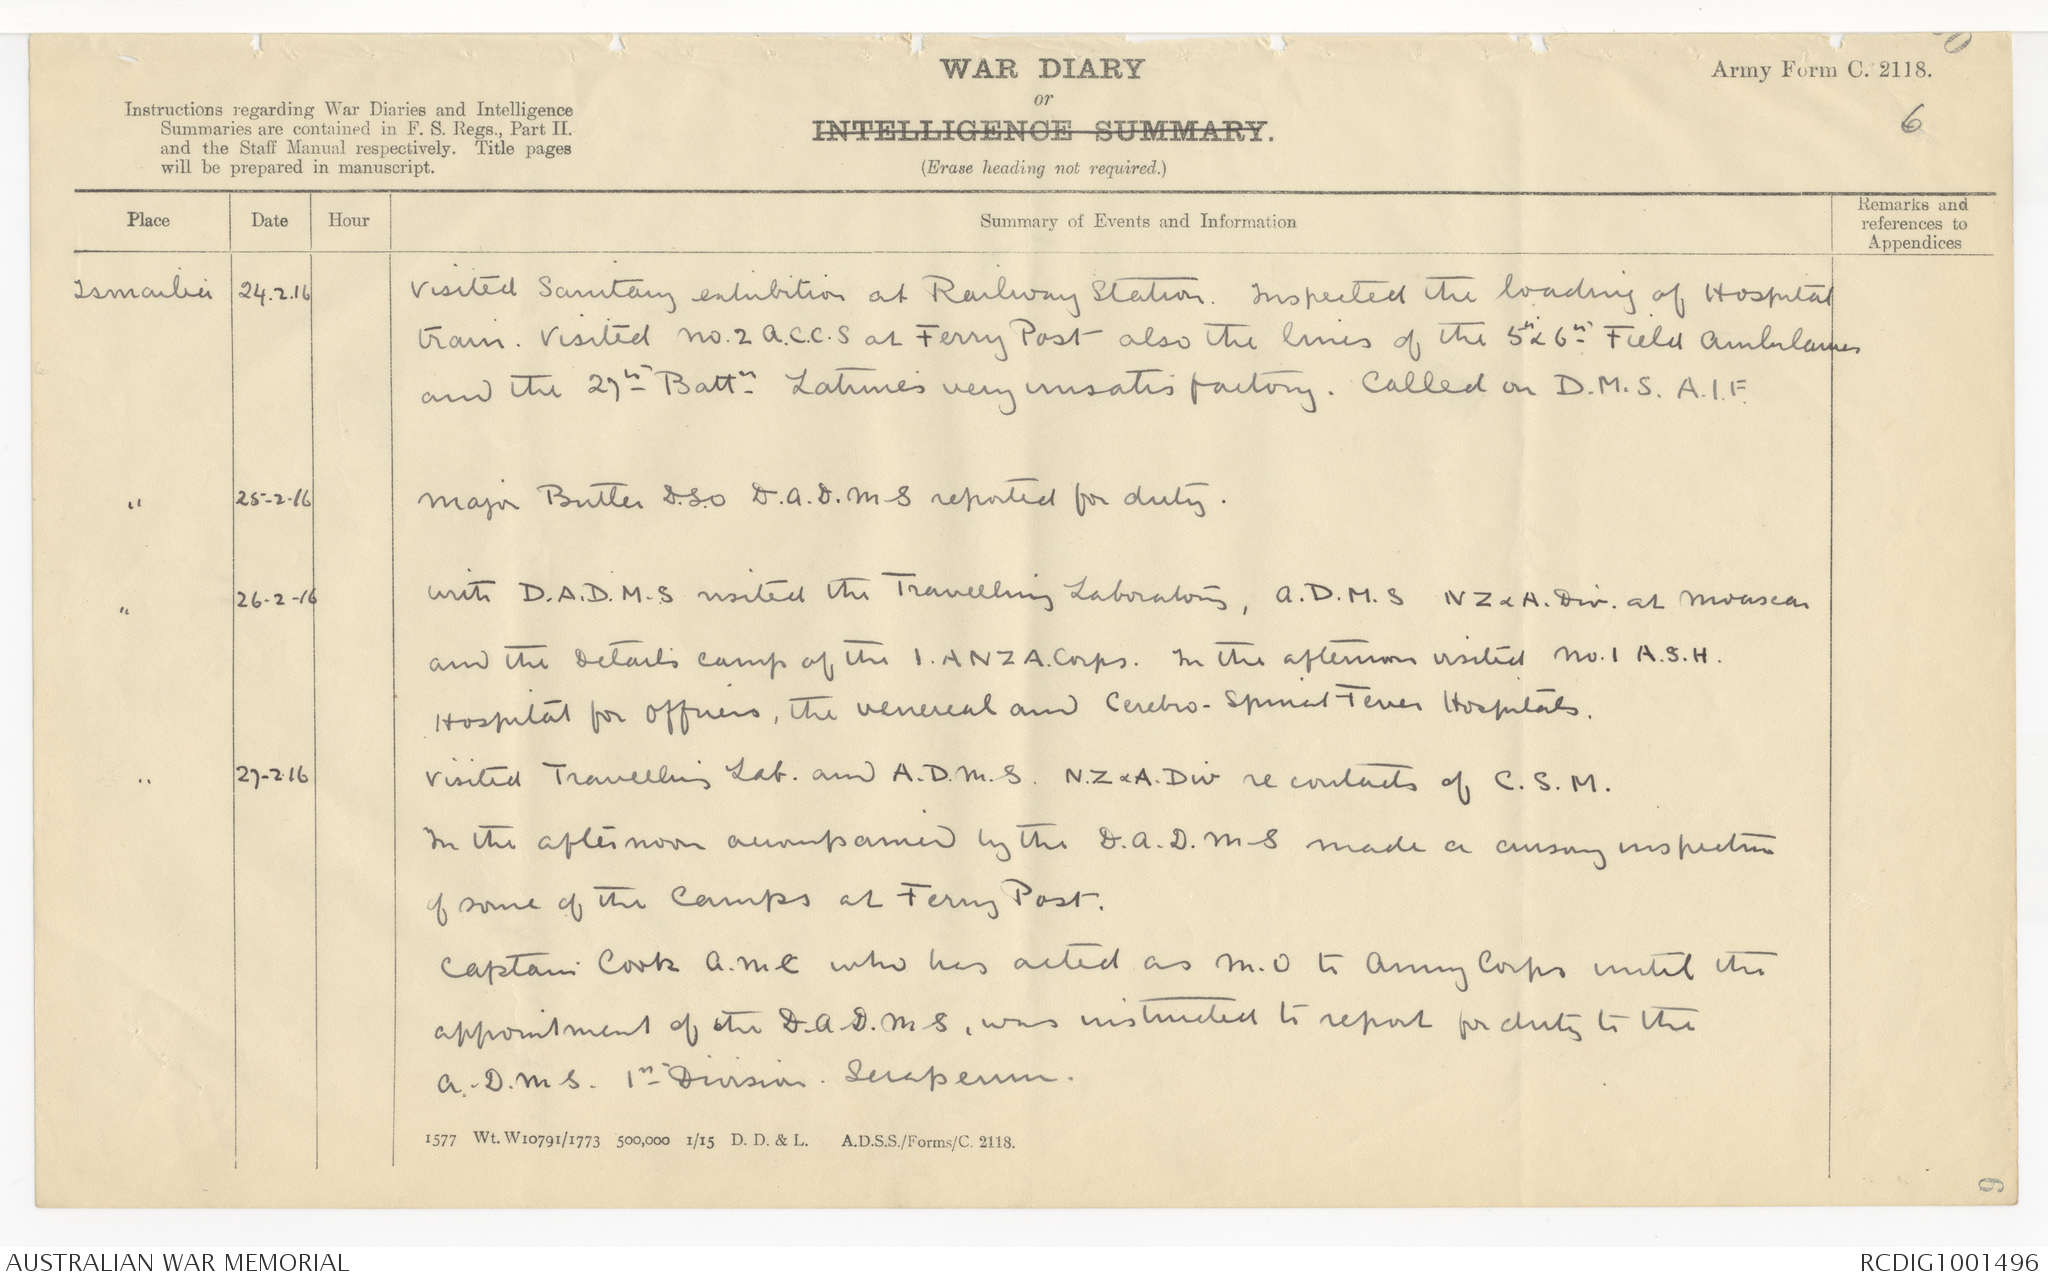 WAR DIARY
or
INTELLIGENCE SUMMARY.
(Erase heading not required.)
Army Form C. 2118.
6
Instructions regarding War Diaries and Intelligence
Summaries are contained in F. S. Regs., Part II.
and the Staff Manual respectively. Title pages
will be prepared in manuscript.
Place Date Hour Summary of Events and Information Remarks and references to Appendices
Ismailia 24.2.16 Visited Sanitary exhibition at Railway Station. Inspected the loading of Hospital
train. Visited No.2 A.C.C.S at Ferry Post also the lines of the 5th & 6th Field Ambulances
and the 27th Battn Latrines very unsatisfactory. Called on D.M.S. A.I.F.
" 25-2-16 Major Butler D.S.O D.A.D.M.S reported for duty.
" 26-2-16 With D.A.D.M.S visited the Travelling Laboratory, A.D.M.S NZ & A. Div. at Moascar
and the Details camp of the 1. ANZA.Corps. In the afternoon visited No.1 A.S.H.
Hospital for Officers, the venereal and Cerebro-Spinal Fever Hospitals.
" 27-2-16 Visited Travelling Lab. and A.D.M.S. N.Z & A. Div re contacts of C.S.M.
In the afternoon accompanied by the D.A.D.M.S made a cursory inspection
of some of the Camps at Ferry Post.
Captain Cook A.M.C who has acted as M.O to Army Corps until the
appointment of the D.A.D.M.S, was instructed to report for duty to the
A.D.M.S. 1st Division. Serapeum.
1577 Wt. W10791/1773 500,000 1/15 D. D. & L. A.D.S.S./Forms/C. 2118.
6
AUSTRALIAN WAR MEMORIAL RCDIG1001496